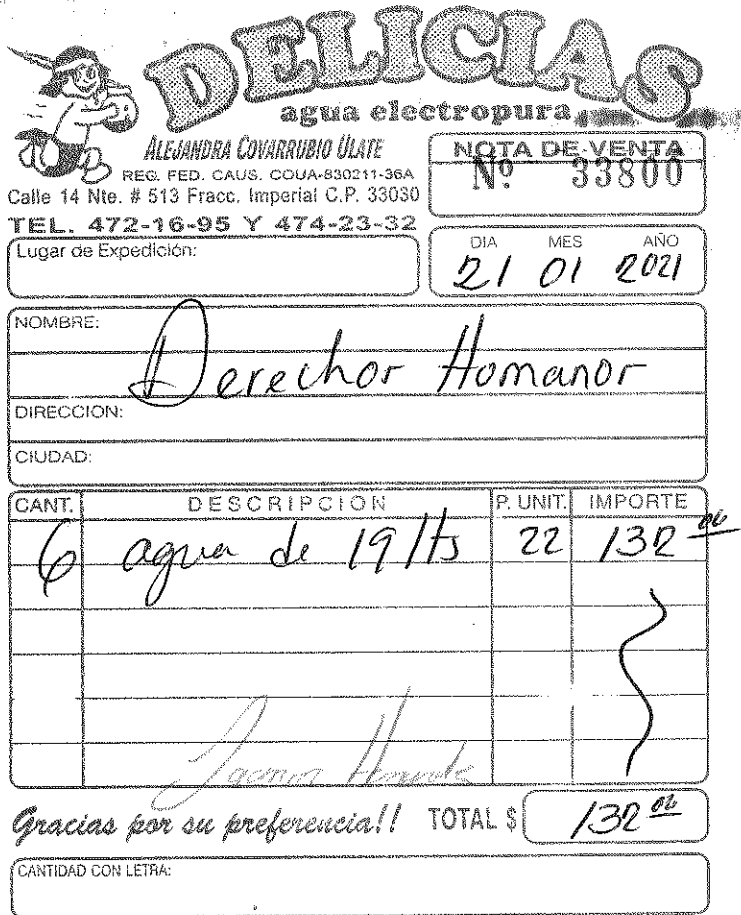 DELICIAS
agua electropura
ALEJANDRA COVARRUBIO ULATE
REG. FED. CAUS. COUA-830211-36A
Calle 14 Nte. # 513 Fracc. Imperial C.P. 33030
TEL. 472-16-95 Y 474-23-32
NOTA DE VENTA
Nº 33800
Lugar de Expedición:
DIA MES AÑO
21 01 2021
NOMBRE:
Derechor Homanor
DIRECCION:
CIUDAD:
CANT. DESCRIPCION P. UNIT. IMPORTE
6 agua de 19 lts 22 132 00
Gracias por su preferencia!! TOTAL $ 132 00
CANTIDAD CON LETRA: